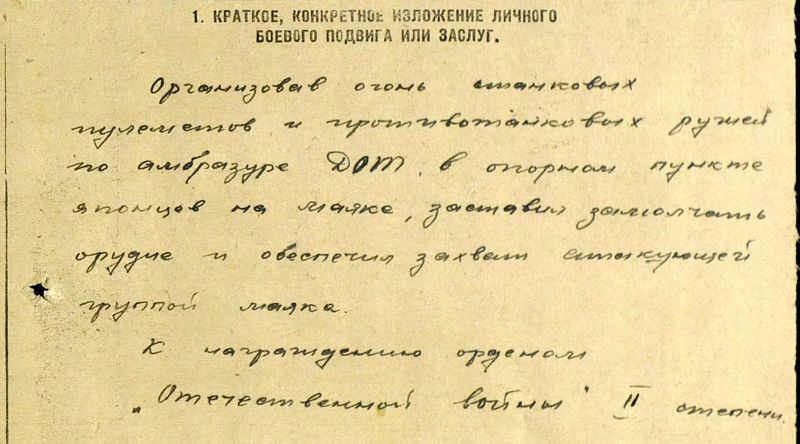 1. КРАТКОЕ, КОНКРЕТНОЕ ИЗЛОЖЕНИЕ ЛИЧНОГО
БОЕВОГО ПОДВИГА ИЛИ ЗАСЛУГ.
Организовав огонь станковых
пулеметов и противотанковых ружей
по амбразуре ДОТ, в опорном пункте
японцев на маяке, заставил замолчать
орудие и обеспечил захват атакующей
группой маяка.
К награждению орденом
„Отечественной войны" II степени.